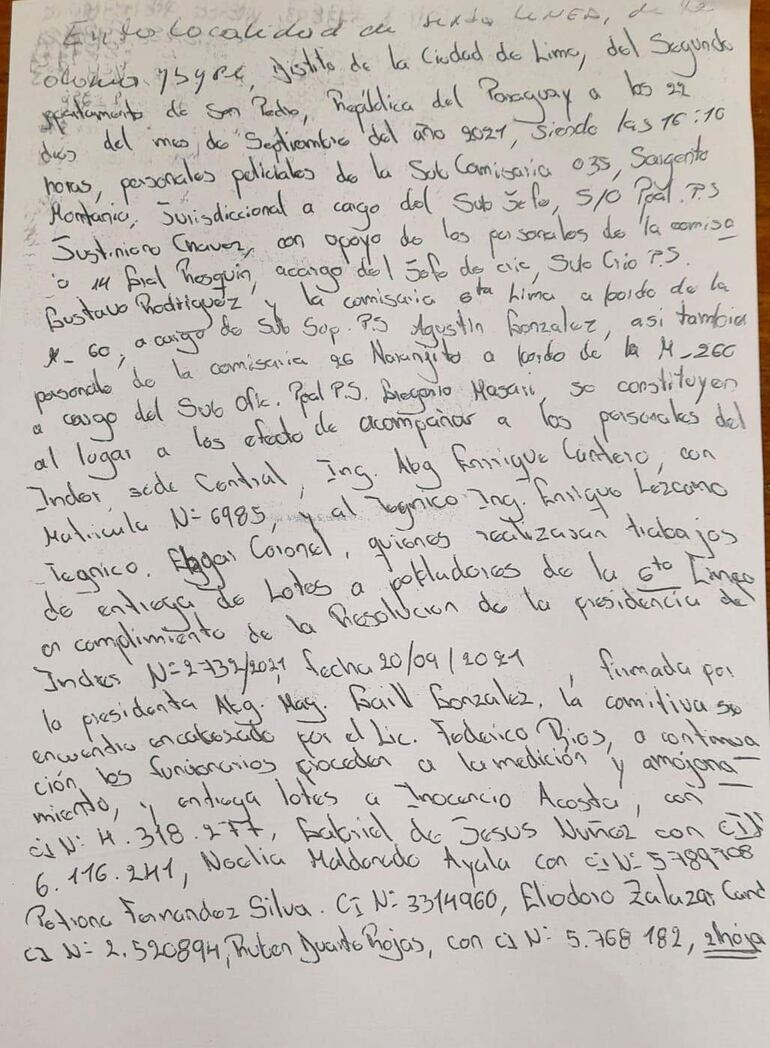 En la Localidad de sexta LINEA, de la
colonia ysype, Distito de la Ciudad de Lima, del Segundo
partamento de San Pedro, República del Paraguay a los 22
dias del mes de Septiembre del año 2021, siendo las 16:10
horas, personales policiales de la Sub Comisaria 035, Sargento
Montania, Jurisdiccional a cargo del Sub Jefe, S/O Ppal. P.S
Justiniano Chavez, con apoyo de los personales de la comisa
14 Gral Resquin, acargo del Jefe de cria, Sub Crio P.S.
Gustavo Rodriguez y la comisaria 6ta Lima a bordo de la
60, a cargo de Sub Sop. P.S Agustin Gonzalez, asi tambien
personale de la comisaria 26 Naranjito a bordo de la M_260
a cargo del Sub Ofic. Ppal P.S. Gregorio Masari, se constituyen
al lugar a los efecto de acompañar a los personales del
Indert sede Central, Ing. Abg Enrrique Cantero, con
Matricula N= 6985, y al Tegnico Ing. Enrique Lezcano
Tegnico. Edgar Coronel, quienes realizaran trabajos
de entrega de Lotes a pobladores de la 6ta Linea
en complimiento de la Resolucion de la presidencia del
Indert N=2732/2021, fecha 20/09/2021, firmada por
la presidenta Abg. Mag. Gail Gonzalez, la comitiva se
encuentra encabezado por el Lic. Federico Rios, a continua
ción los funcionarios proceden a la medición y amojona_
miento, y entrega lotes a Inocencio Acosta, con
ci N: 4.318.277, Gabriel de Jesus Nuñez con ciN
6.116.241, Noelia Maldonado Ayala con ci N= 5789708
Petrona Fernandez Silva. CI N= 3314960, Eliodoro Zalazar
ci N= 2.520894, Ruben Duarte Rojas, con ci N= 5.768 182, 2hoja